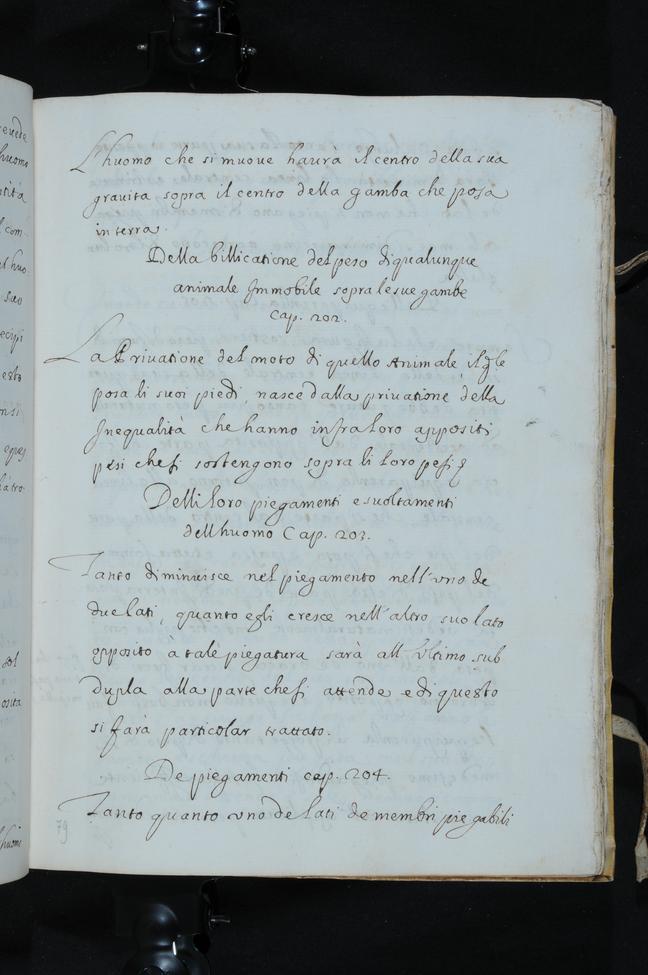 L'huomo che si muoue haurà il centro della sua
grauita sopra il centro della gamba che posa
in terra.
Della billicatione del peso di qualunque
animale Immobile sopra le sue gambe
Cap. 202.
La Priuatione del moto di quello Animale, il q̃le
posa li suoi piedi, nasce dalla priuatione della
Inequalità che hanno infra loro appositi
pesi che si sostengono sopra li loro pesi
Delli loro piegamenti e suoltamenti
dell huomo Cap. 203.
Tanto diminuisce nel piegamento nell'uno de
due lati, quanto egli cresce nell'altro suo lato
opposito à tale piegatura sarà all'ultimo sub
dupla alla parte che si attende e di questo
si farà particolar trattato.
De piegamenti cap. 204.
Tanto quanto uno de lati de membri piegabili
79